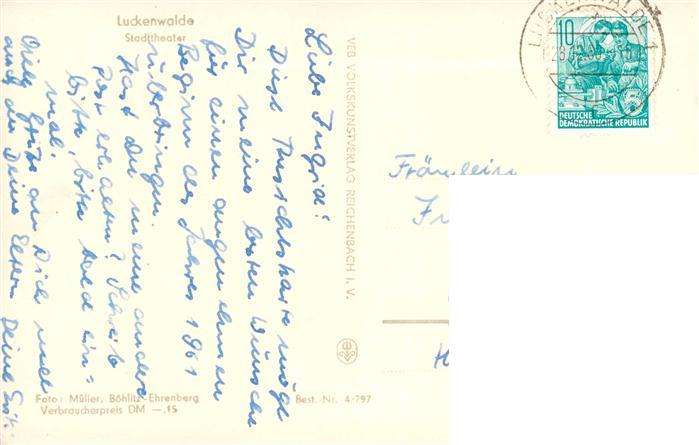 Luckenwalde
Stadttheater
Liebe Ingrid!
Diese Ansichtskarte möge
Dir meine besten Wünsche
für einen angenehmen
Beginn des Jahres 1961
überbringen.
Hast Du meine andere
Post erhalten? Schreib
bitte, bitte bald ein-
mal.
Viele Grüße an Dich und
auch an Deine Eltern Deine
VEB VOLKSKUNSTVERLAG REICHENBACH I. V.
Foto: Müller, Böhlitz-Ehrenberg
Verbraucherpreis DM —.15
Best.-Nr. 4-797
LUCKENWALDE 1
10
5
DEUTSCHE
DEMOKRATISCHE REPUBLIK
Fräulein